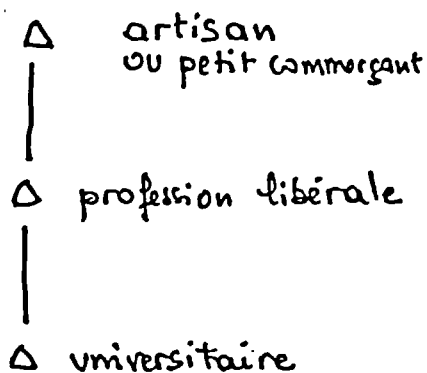 artisan
ou petit commerçant
profession libérale
universitaire